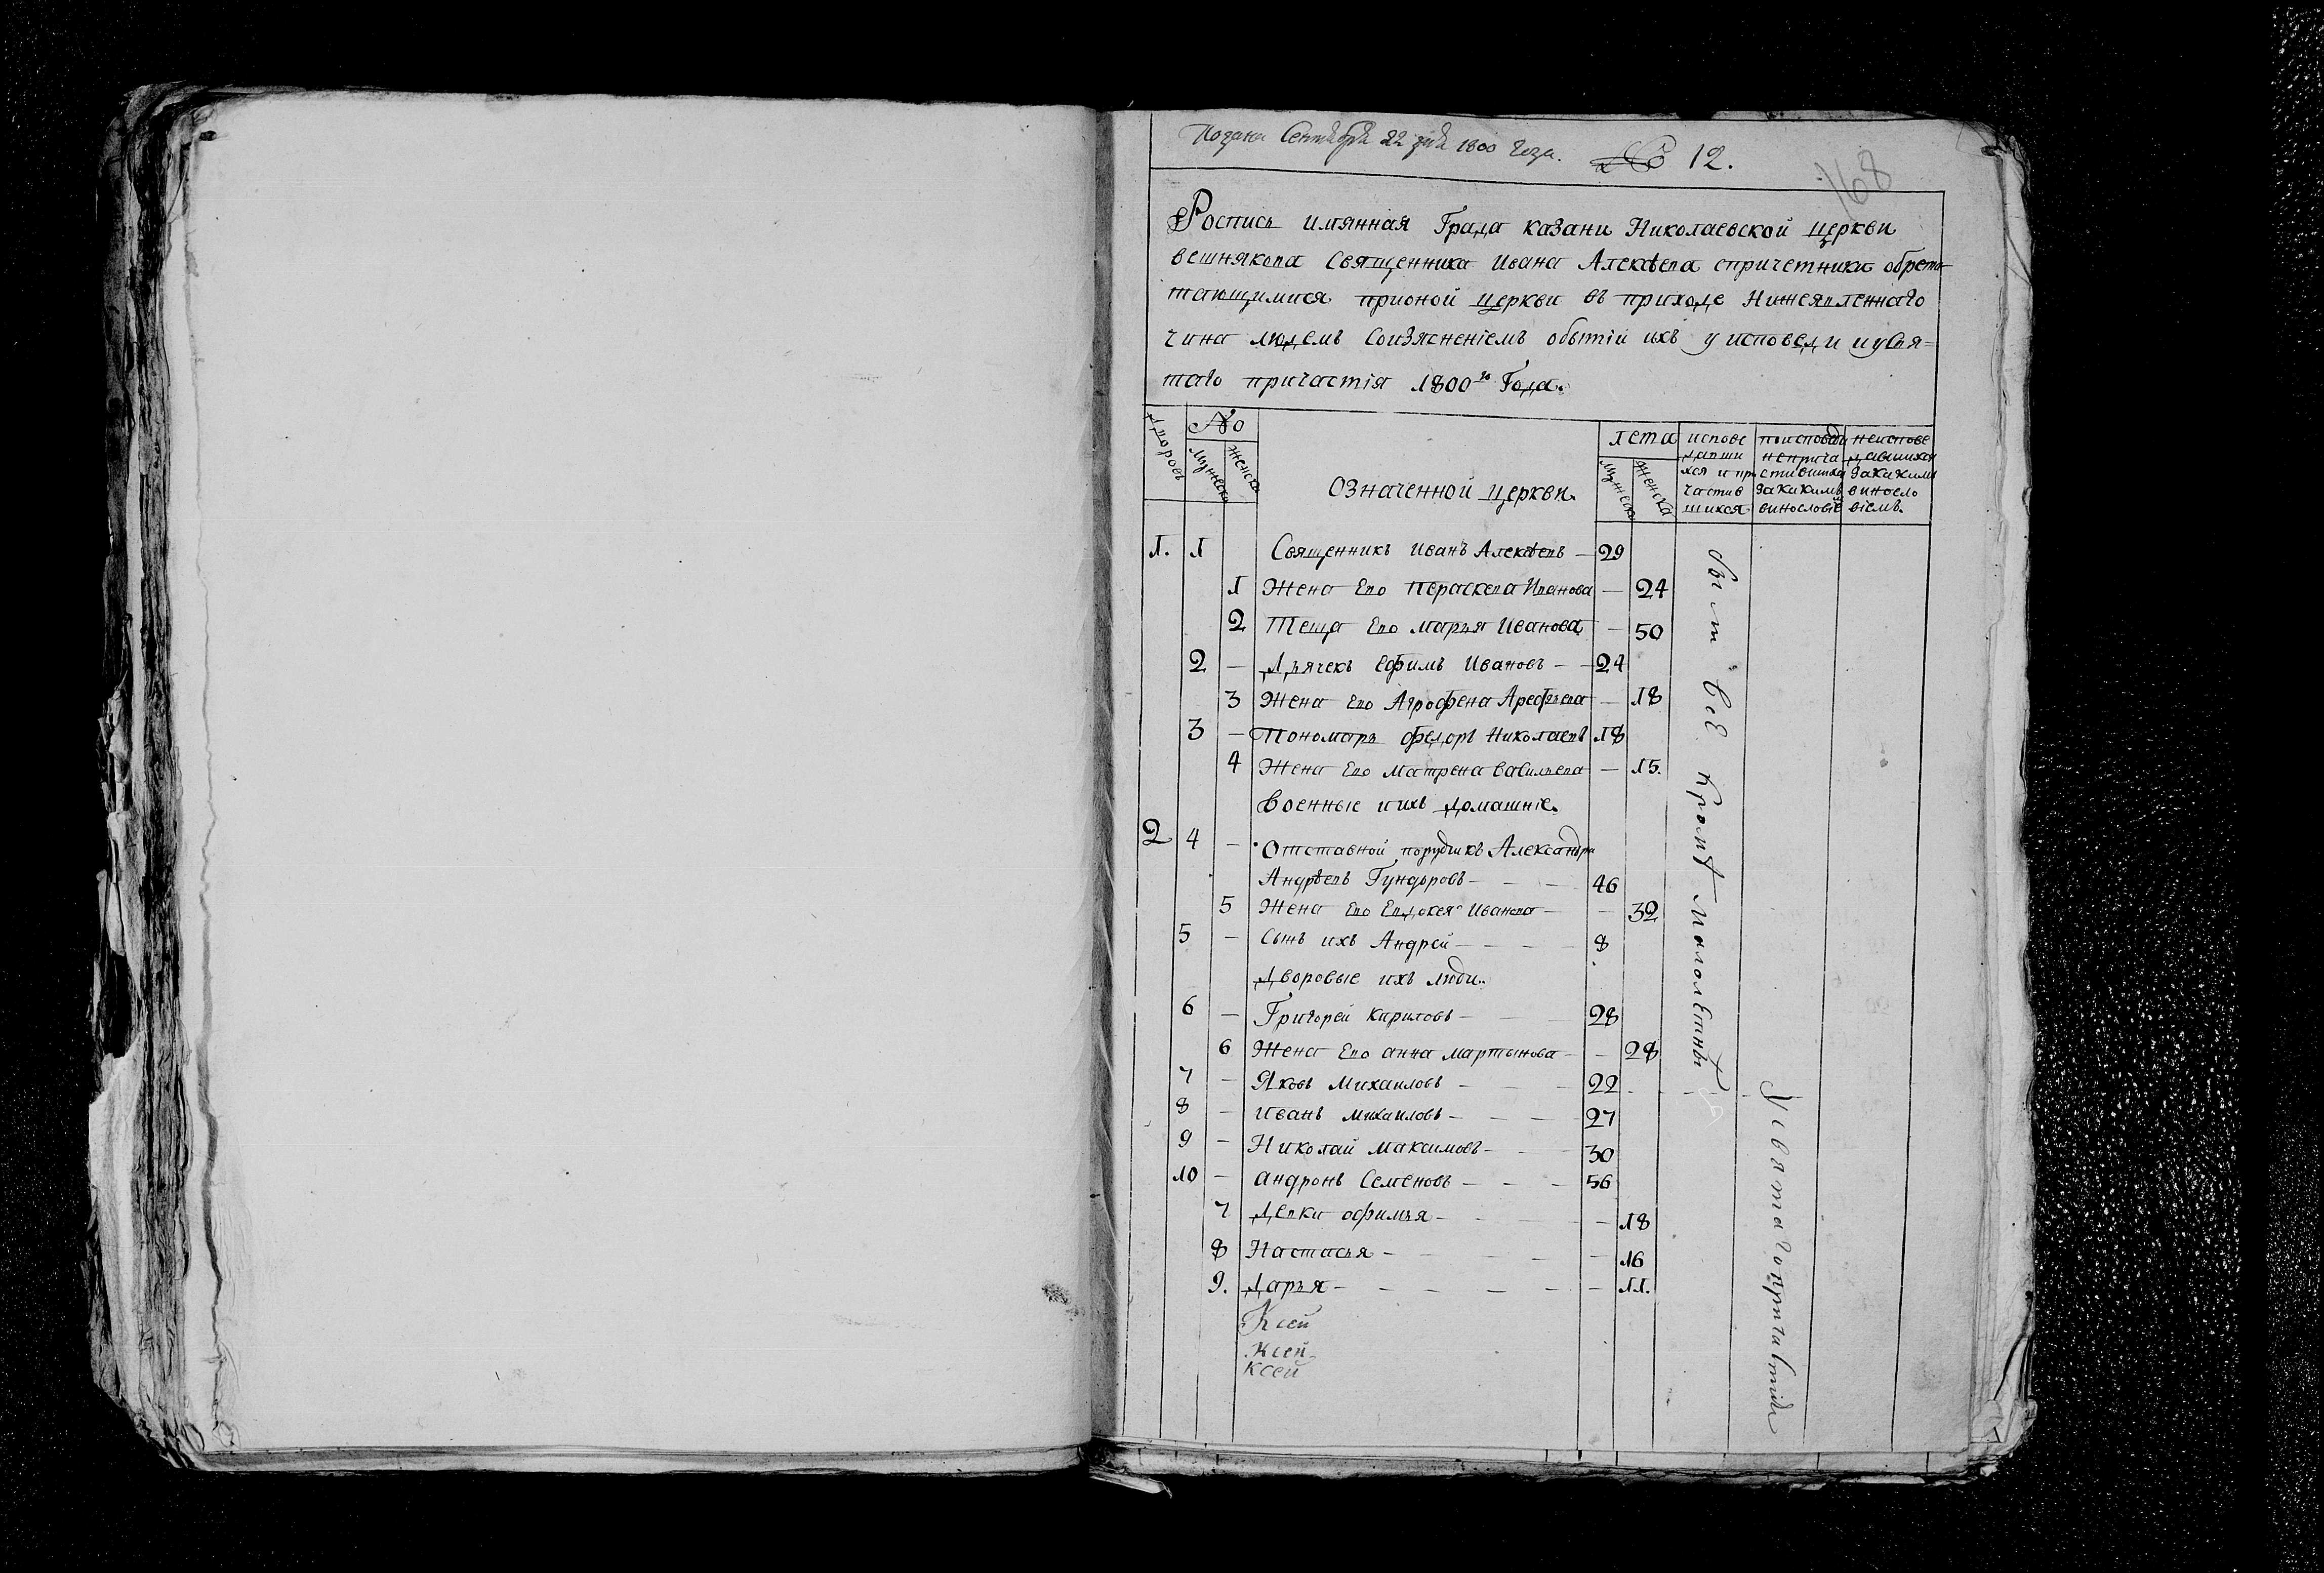 Подана Сентября 22 дня 1800 Года. № 12.
168
Роспись имянная Града казани Николаевской церкви
вешнякова Священника Ивана Алексѣева спричетники обрета
тающимися прионой церкви въ приходе Нижеявленнаго
чина людемъ Соизясненiемъ обытiи ихъ у исповеди иусвя=
таго причастiя 1800го Года.
Дворовъ
№
мужеска
женска
Означенной церкви.
лета
мужеска
женска
испове
давши
хся и при
частив
шихся
поисповеди
неприча
стившихся
закакимъ
винословiемъ
неиспове
давшихся
закакимъ
виносло
вiемъ.
1. 1 Священникъ Иванъ Алексѣевъ — 29
1 Жена Ево Пераскева Иванова — 24
2 Теща Ево Марья Иванова — 50
2 — Дьячекъ Ефимъ Ивановъ — — 24
3 Жена Ево Агрофена Арефьева — 18
3 — Пономарь федоръ Николаевъ 18
4 Жена Ево Матрена васильева — 15.
Военные иихъ домашнiе.
2 4 — Отставной порудчикъ Александръ
Андрѣевъ Гундоровъ — — — 46
5 Жена Ево Евдокея Иванова — — 32
5 — Сынъ ихъ Андрей — — — — 8
Дворовые ихъ люди.
6 — Григорей Кириловъ — — — 28
6 Жена Ево анна мартынова — — 28
7 — Яковъ Михаиловъ — — — 22
8 — Иванъ михаиловъ — — — 27
9 — Николай Максимовъ — — — 30
10 — андронъ Семеновъ — — — 56
7 Девки офимья — — — — 18
8 Настасья — — — — — 16
9. Дарья — — — — — — 11.
Ксей
Ксей
Ксей
были всѣ кромѣ малолѣтныхъ
Усвятагопричастiя